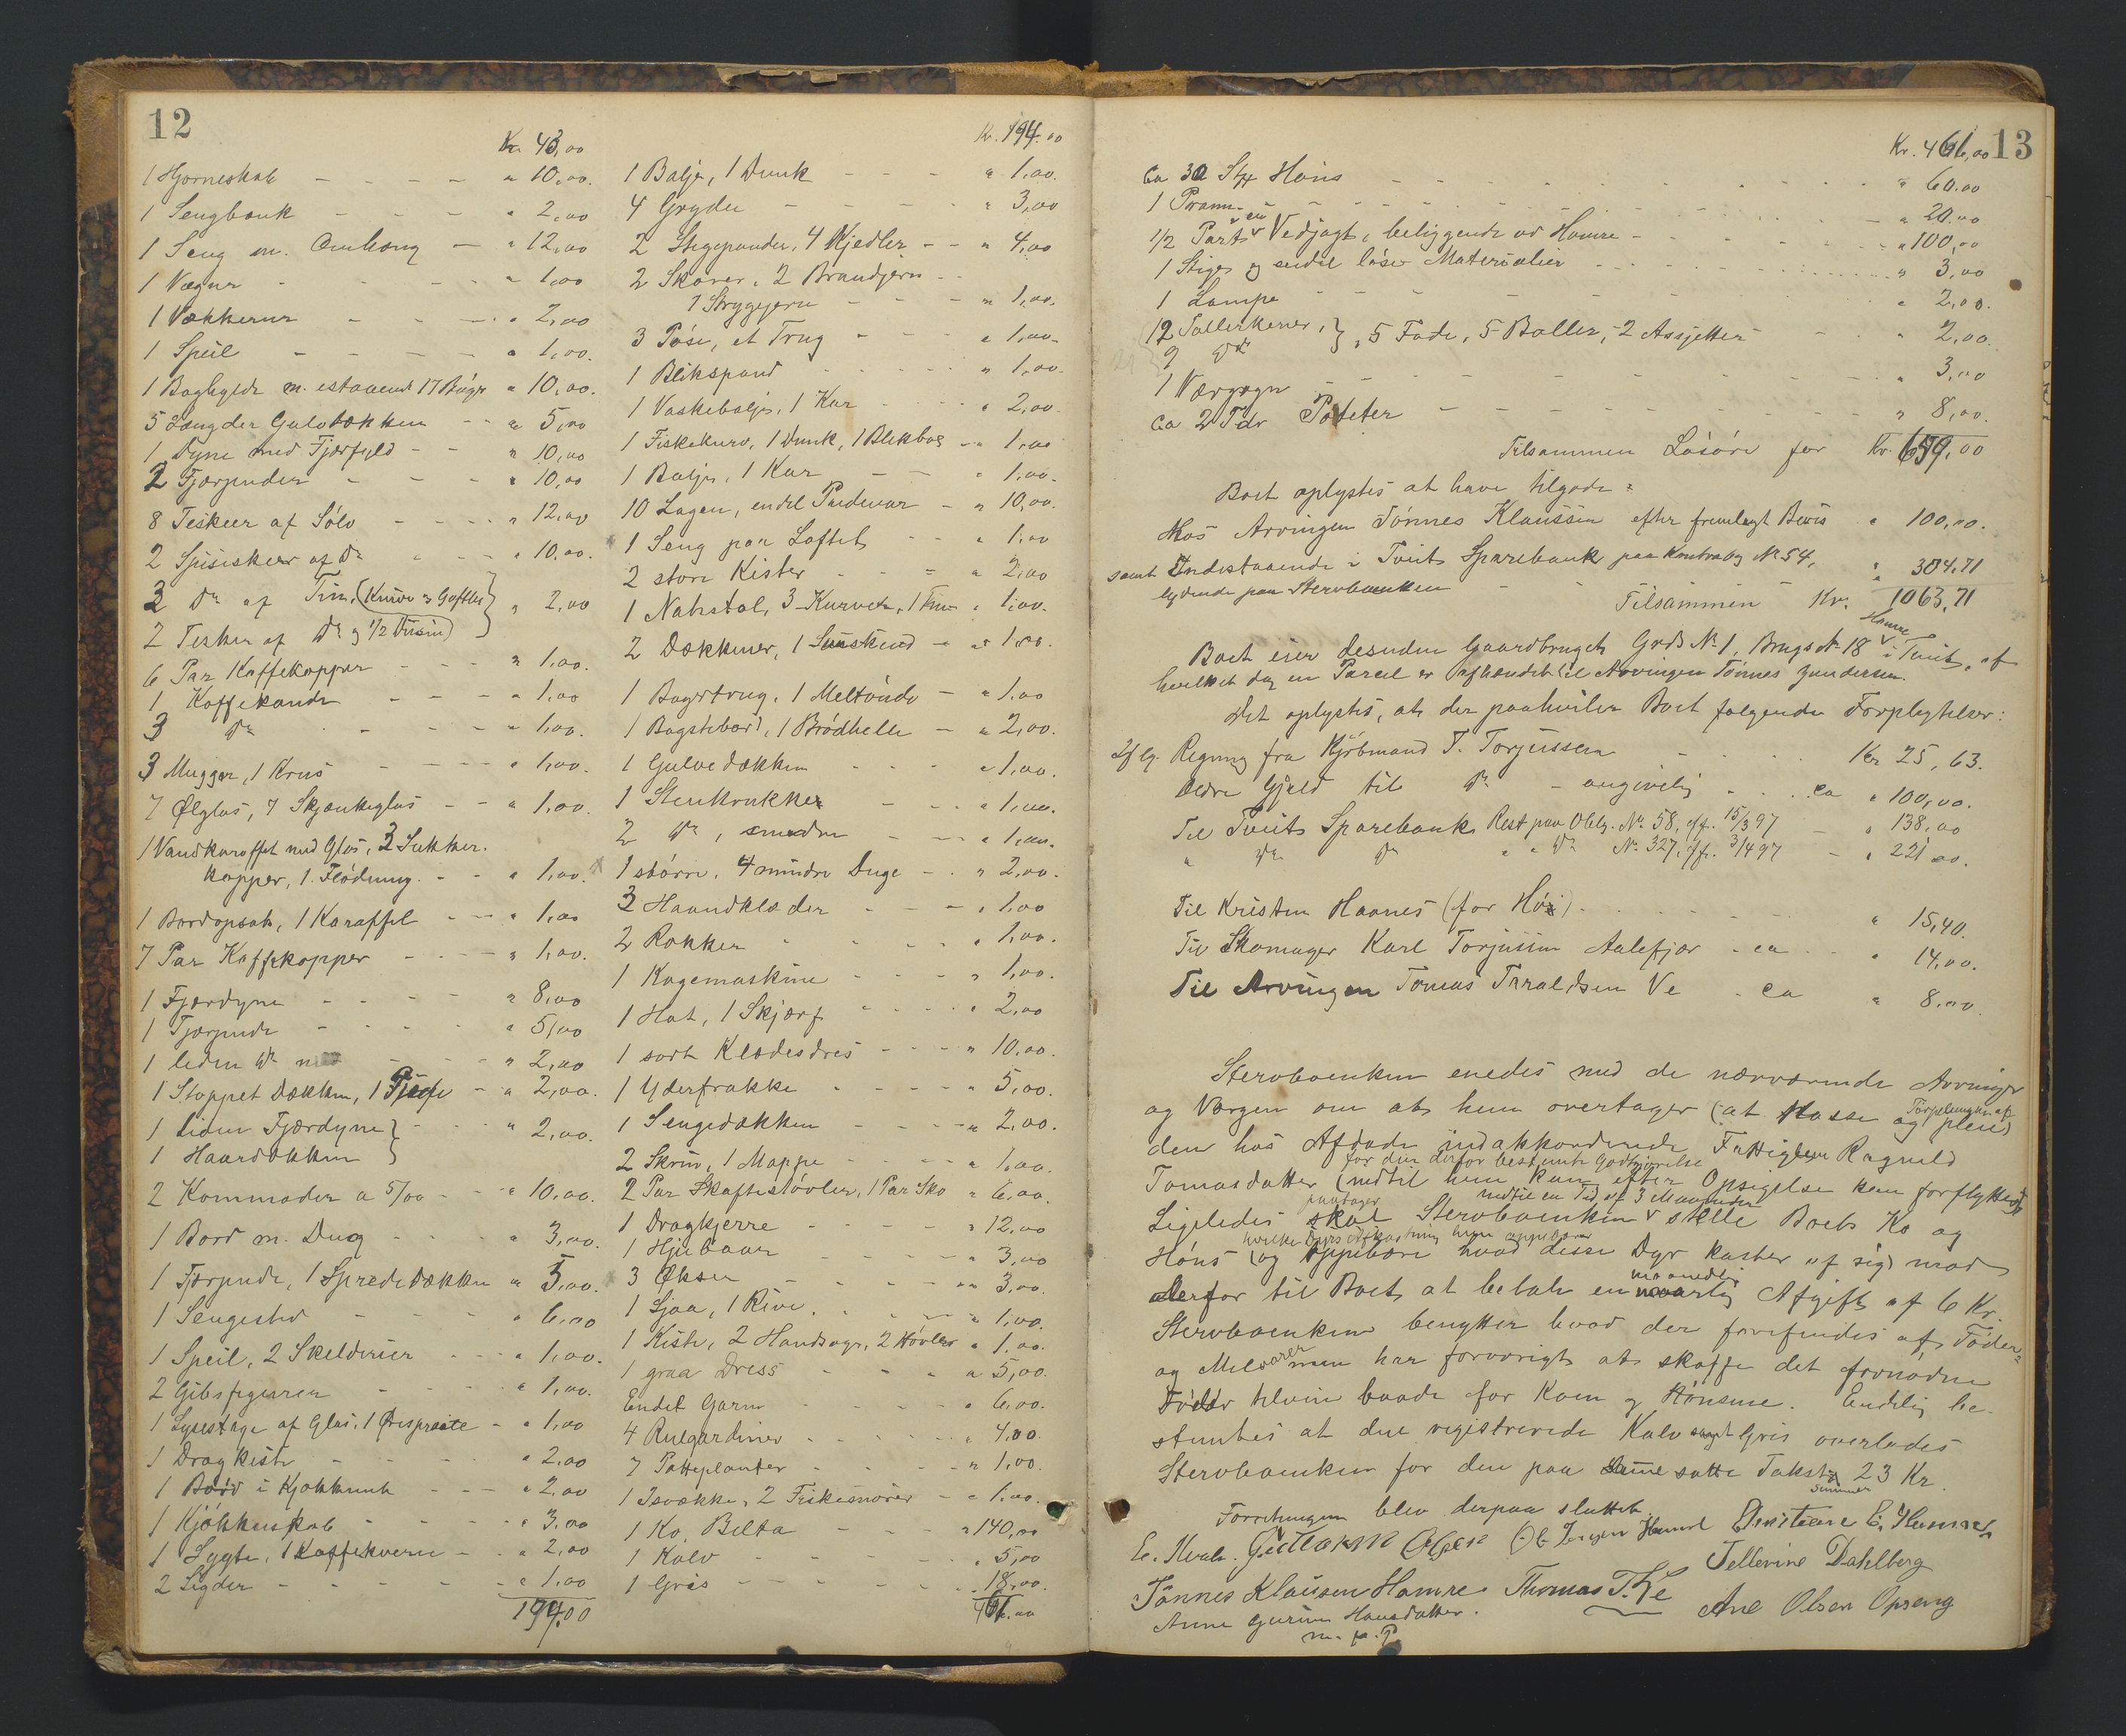 12
Kr. 43,00
1 Hjørneskab - - - - " 10,00.
1 Sengbænk - - - - " 2,00
1 Seng m. Omhæng - " 12,00
1 Vægur - - - - " 1,00
1 Vækkerur - - - " 2,00
1 Speil - - - - " 1,00.
1 Boghylde m. istaaende 17 Bøger " 10,00.
5 Længder Gulvtækken - - " 5,00
1 Dyne med Fjærfyld - - " 10,00
2 Fjærpuder - - - - " 10,00
8 Teskeer af Sølv - - - " 12,00
2 Spiseskeer af Do - - " 10,00.
3 Do af Tin, (Knive og Gafler } " 2,00
2 Teskeer af Do og 1/2 Dusin)
6 Par Kaffekopper - - - " 1,00.
1 Kaffekande - - - - " 1,00
3 Do - - - - " 1,00.
3 Mugger, 1 Krus - - - " 1,00.
7 Ølglas, 7 Skjænkeglas - - " 1,00.
1 Vandkaraffel med Glas, 3 Sukker-
kopper, 1 Flødmug. - - " 1,00.
1 Bordopsats, 1 Karaffel - - " 1,00
7 Par Kaffekopper - - - " 1,00.
1 Fjærdyne - - - - " 8,00
1 Fjærpude - - - - " 5,00
1 liden Do - - - " 2,00
1 Stoppet Dækken, 1 - " 2,00.
1 liden Fjærdyne } - - " 2,00.
1 Haardækken }
2 Kommoder a 5/00 - - " 10,00.
1 Bord m. Dug - - - " 3,00.
1 Fjærpude, 1 Sprededækken " 5,00.
1 Sengested - - - - " 6,00
1 Speil, 2 Skelderier - - " 1,00.
2 Gibsfigurer - - - " 1,00.
1 Lysestage af Glas, 1 - " 1,00
1 Dragkiste - - - - " 2,00
1 Bord i Kjøkkenet - - - " 2,00
1 Kjøkkenskab - - - " 3,00
1 Lygte, 1 Kaffekvern - - " 2,00
2 Sigder - - - - - " 1,00
194.00
Kr. 194.00
1 Balje, 1 Dunk - - - " 1,00.
4 Gryder - - - - " 3,00
2 Stegepander, 4 Kjedler - - " 4,00
2 Skorer, 2 Brandjern - -
1 Strygejern - - - " 1,00.
3 Pøse, et Trug - - - " 1,00.
1 Blikspand - - - - " 1,00.
1 Vaskebalje, 1 Kar - - - " 2,00.
1 Fiskekurv, 1 Dunk, 1 Blikbox - " 1,00
1 Balje, 1 Kar - - - " 1,00.
10 Lagen, endel Pudevar - " 10,00.
1 Seng paa Loftet - - " 1,00
2 store Kister - - - " 2,00
1 Natstol, 3 Kurver, 1 - " 1,00.
2 Dækkener, 1 Saueskind - " 1,00.
1 Bagertrug, 1 Meltønde - " 1,00
1 Bagstebord, 1 Brødhelle - " 2,00.
1 Gulvedækken - - - " 1,00.
1 Stenkrukker - - - " 1,00.
2 Do, smaadre - - - " 1,00.
1 større, 4 mindre Duge - - " 2,00.
3 Haandklæder - - - " 1,00
2 Rokker - - - - " 1,00.
1 Kagemaskine - - - " 1,00.
1 Hat, 1 Skjærf - - - " 2,00
1 sort Klædesdres - - - " 10,00.
1 Yderfrakke - - - - " 5,00.
1 Sengedækken - - - - " 2,00.
2 Skrin, 1 Mappe - - - " 1,00.
2 Par Skaftestøvler, 1 Par Sko " 6,00.
1 Dragkjerre - - - - " 12,00
1 Hjulbaar - - - - " 3,00
3 Økser - - - - " 3,00.
1 Ljaa, 1 Rive. - - - " 1,00.
1 Kiste, 2 Haandsage, 2 Høvler " 1,00.
1 graa Dress - - - " 5,00.
Endel Garn - - - - " 6,00.
4 Rulgardiner - - - - " 4,00
7 Potteplanter - - - " 1,00.
1 Isøkke, 2 Fiskesnører - " 1,00.
1 Ko, Belta - - - " 140,00
1 Kalv - - - - " 5,00
1 Gris - - - - " 18,00.
461.00
13
Kr. 461,00
Ca 30 Stk Høns - - - - " 60.00
1 Pram - - - - " 20.00
1/2 Part i en Vedjagt, beliggende ved Hamre - - - " 100,00
1 Stige og endel løse Materialier - - - " 3,00
1 Lampe - - - - " 2,00.
12 Tallerkener, } 5 Fade, 5 Boller, 2 Assjetter - - " 2,00.
9 Do }
1 - - - - " 3,00
Ca 2 Tdr Poteter - - - - " 8,00.
Tilsammen Løsøre for Kr. 659,00
Boet oplystes at have tilgode:
Hos Arvingen Tønnes Klaussen efter fremlagt Bevis " 100,00.
samt Indestaaende i Tveit Sparebank paa Kontrabog No 54,
lydende paa Stervboenken - - " 304,71
Tilsammen Kr. 1063,71
Boet eier desuden Gaardbruget Gards No 1, Brugs No 18 Hamre i Tveit, af
hvilket dog en Parcel er afhændet til Arvingen Tønnes Gundersen.
Det oplystes, at der paahviler Boet følgende Forpligtelser:
Iflg. Regning fra Kjøbmand T. Torjussen - - Kr 25,63.
Ældre Gjæld til Do - angivelig - - ca " 100,00.
Til Tveit Sparebank Rest paa Oblg. No 58, eft. 15/3 97 - " 138,00
" Do Do " " Do No 327, eft. 3/4 97 - " 221,00.
Til Kristen Haanes (for Hø) - - - - " 15,40.
Til Skomager Karl Torjussen Aalefjær - ca - " 14,00.
Til Arvingen Tomas Taraldsen Ve - ca " 8.00
Stervboenken enedes med de nærværende Arvinger
og Værgen om at hun overtager (at Passe og pleie) Forpleiningen af
den hos Afdøde indakkorderede Fattiglem Ragnild
Tomasdatter for den derfor bestemte Godtgjørelse (indtil hun kan efter Opsigelse kan forflyttes)
Ligeledes paatager skal Stervboenken indtil en Tid af 3 Maaneder stelle Boets Ko og
Høns hvilke Dyrs Afkastning hun oppebærer (og oppebære hvad disse Dyr kaster af sig) mod
derfor til Boet at betale en maanedlig Afgift af 6 Kr.
Stervboenken benytter hvad der forefindes af Foder-
og Melvarer men har forøvrigt at skaffe det fornødne
Foder tilveie baade for Koen og Hønsene. Endelig be-
stemtes at den registrerede Kalv samt Gris overlodes
Stervboenken for den paa samme satte Takstsummer 23 Kr.
Forretningen blev derpaa sluttet.
E. Kvale. Ole Jørgen Hamre Christiane C. Hamre
Tønnes Klausen Hamre Thomas T. Ve Tellevine Dahlberg
Anne Gurine Hansdatter. Ane Olsen Opseng
m. p. P.